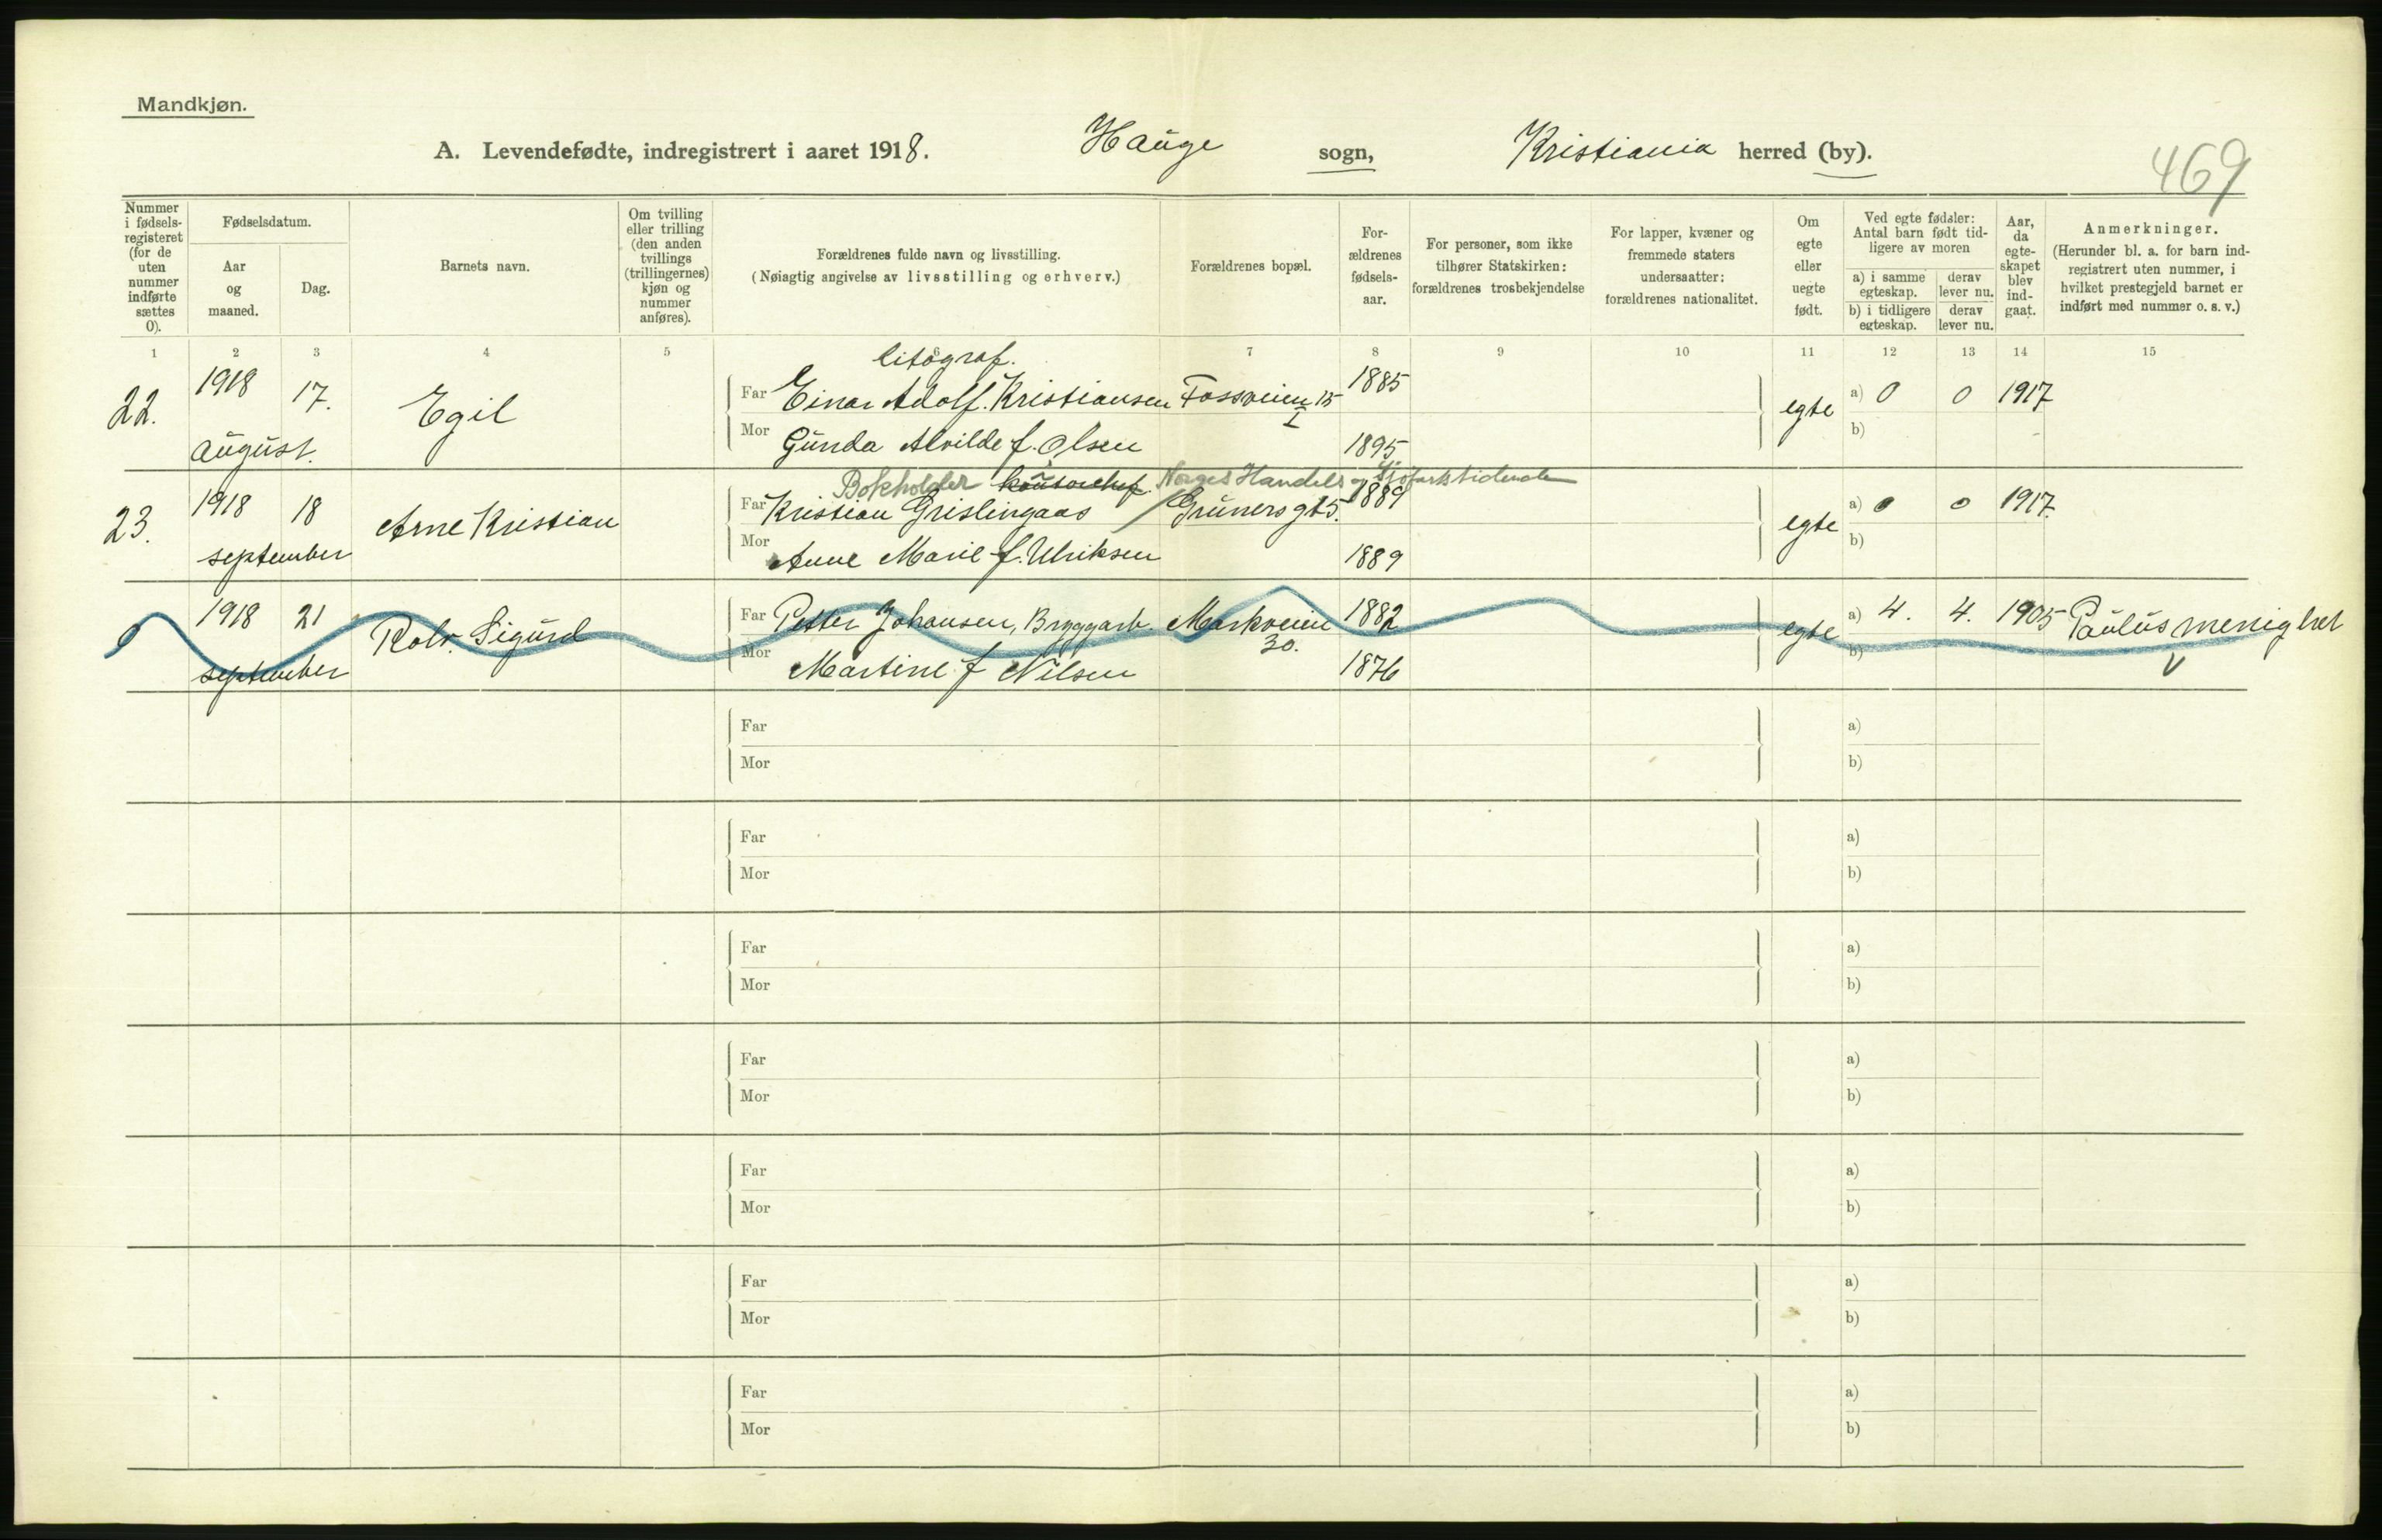 Mandkjøn.
A. Levendefødte, indregistrert i aaret 1918. Hauge sogn, Kristiania herred (by).
469
Nummer i fødsels-registeret (for de uten nummer indførte sættes 0).
Fødselsdatum.
Aar og maaned.
Dag.
Barnets navn.
Om tvilling eller trilling (den anden tvillings (trillingernes) kjøn og nummer anføres).
Forældrenes fulde navn og livsstilling.
(Nøiagtig angivelse av livsstilling og erhverv.)
Forældrenes bopæl.
For-ældrenes fødsels-aar.
For personer, som ikke tilhører Statskirken: forældrenes trosbekjendelse
For lapper, kvæner og fremmede staters undersaatter: forældrenes nationalitet.
Om egte eller uegte født.
Ved egte fødsler: Antal barn født tid-ligere av moren
a) i samme egteskap. derav lever nu.
b) i tidligere egteskap. derav lever nu.
Aar, da egte-skapet blev ind-gaat.
Anmerkninger.
(Herunder bl. a. for barn ind-registrert uten nummer, i hvilket prestegjeld barnet er indført med nummer o. s. v.)
1 2 3 4 5 6 7 8 9 10 11 12 13 14 15
litograf.
22. 1918 17. Egil Far Einar Adolf Kristiansen Fossveien 15 I 1885 egte a) 0 0 1917
august. Mor Gunda Alvilde f. Olsen 1895 b)
Bokholder kontorchef Norges Handels og Sjøfartstidende
23. 1918 18 Arne Kristian Far Kristian Grislingaas Grünersgt 5. 1889 egte a) 0 0 1917.
september Mor Anne Marie f. Ulriksen 1889 b)
0 1918 21 Rolv Sigurd Far Petter Johansen, Bryggarb. Markveien 30. 1882 egte a) 4. 4. 1905 Paulus menighet
september Mor Martine f Nilsen 1876 b)
Far a)
Mor b)
Far a)
Mor b)
Far a)
Mor b)
Far a)
Mor b)
Far a)
Mor b)
Far a)
Mor b)
Far a)
Mor b)